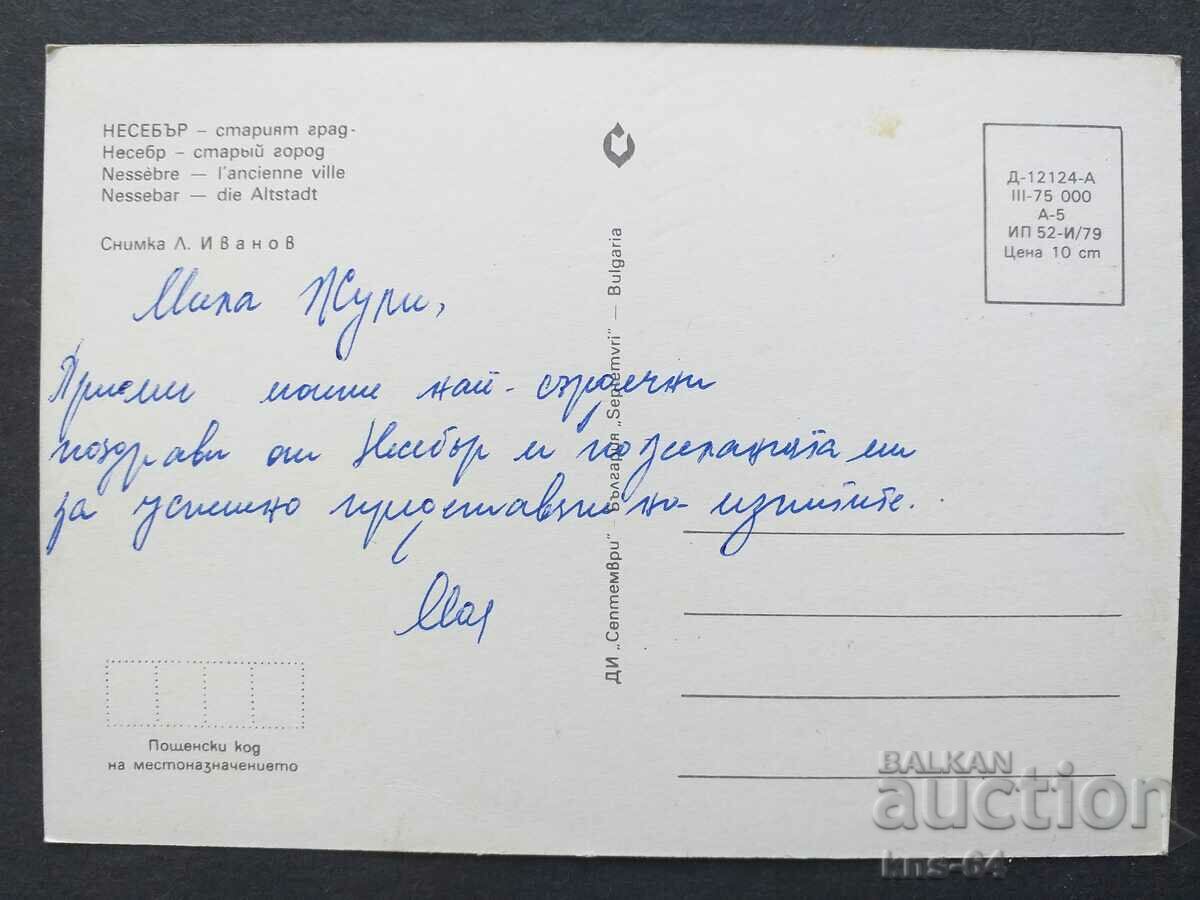 НЕСЕБЪР – старият град-
Несебр – старый город
Nessèbre — l'ancienne ville
Nessebar — die Altstadt
Снимка Л. Иванов
Мила Жули,
Приеми моите най-сърдечни
поздрави от Несебър и пожеланията ми
за успешно представяне на изпитите.
Мая
Пощенски код
на местоназначението
ДИ „Септември" — България „Septemvri" — Bulgaria
Д-12124-А
III-75 000
А-5
ИП 52-И/79
Цена 10 ст
BALKAN
auction
kns-64